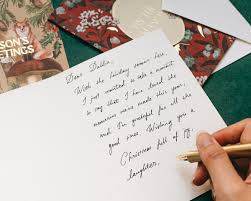 SON'S
TINGS
Dear Debbie,
With the holiday season here,
I just wanted to take a moment
to say that I have loved the
memories we've made this year,
and I'm grateful for all the
good ones. Wishing you a
Christmas full of joy,
laughter,